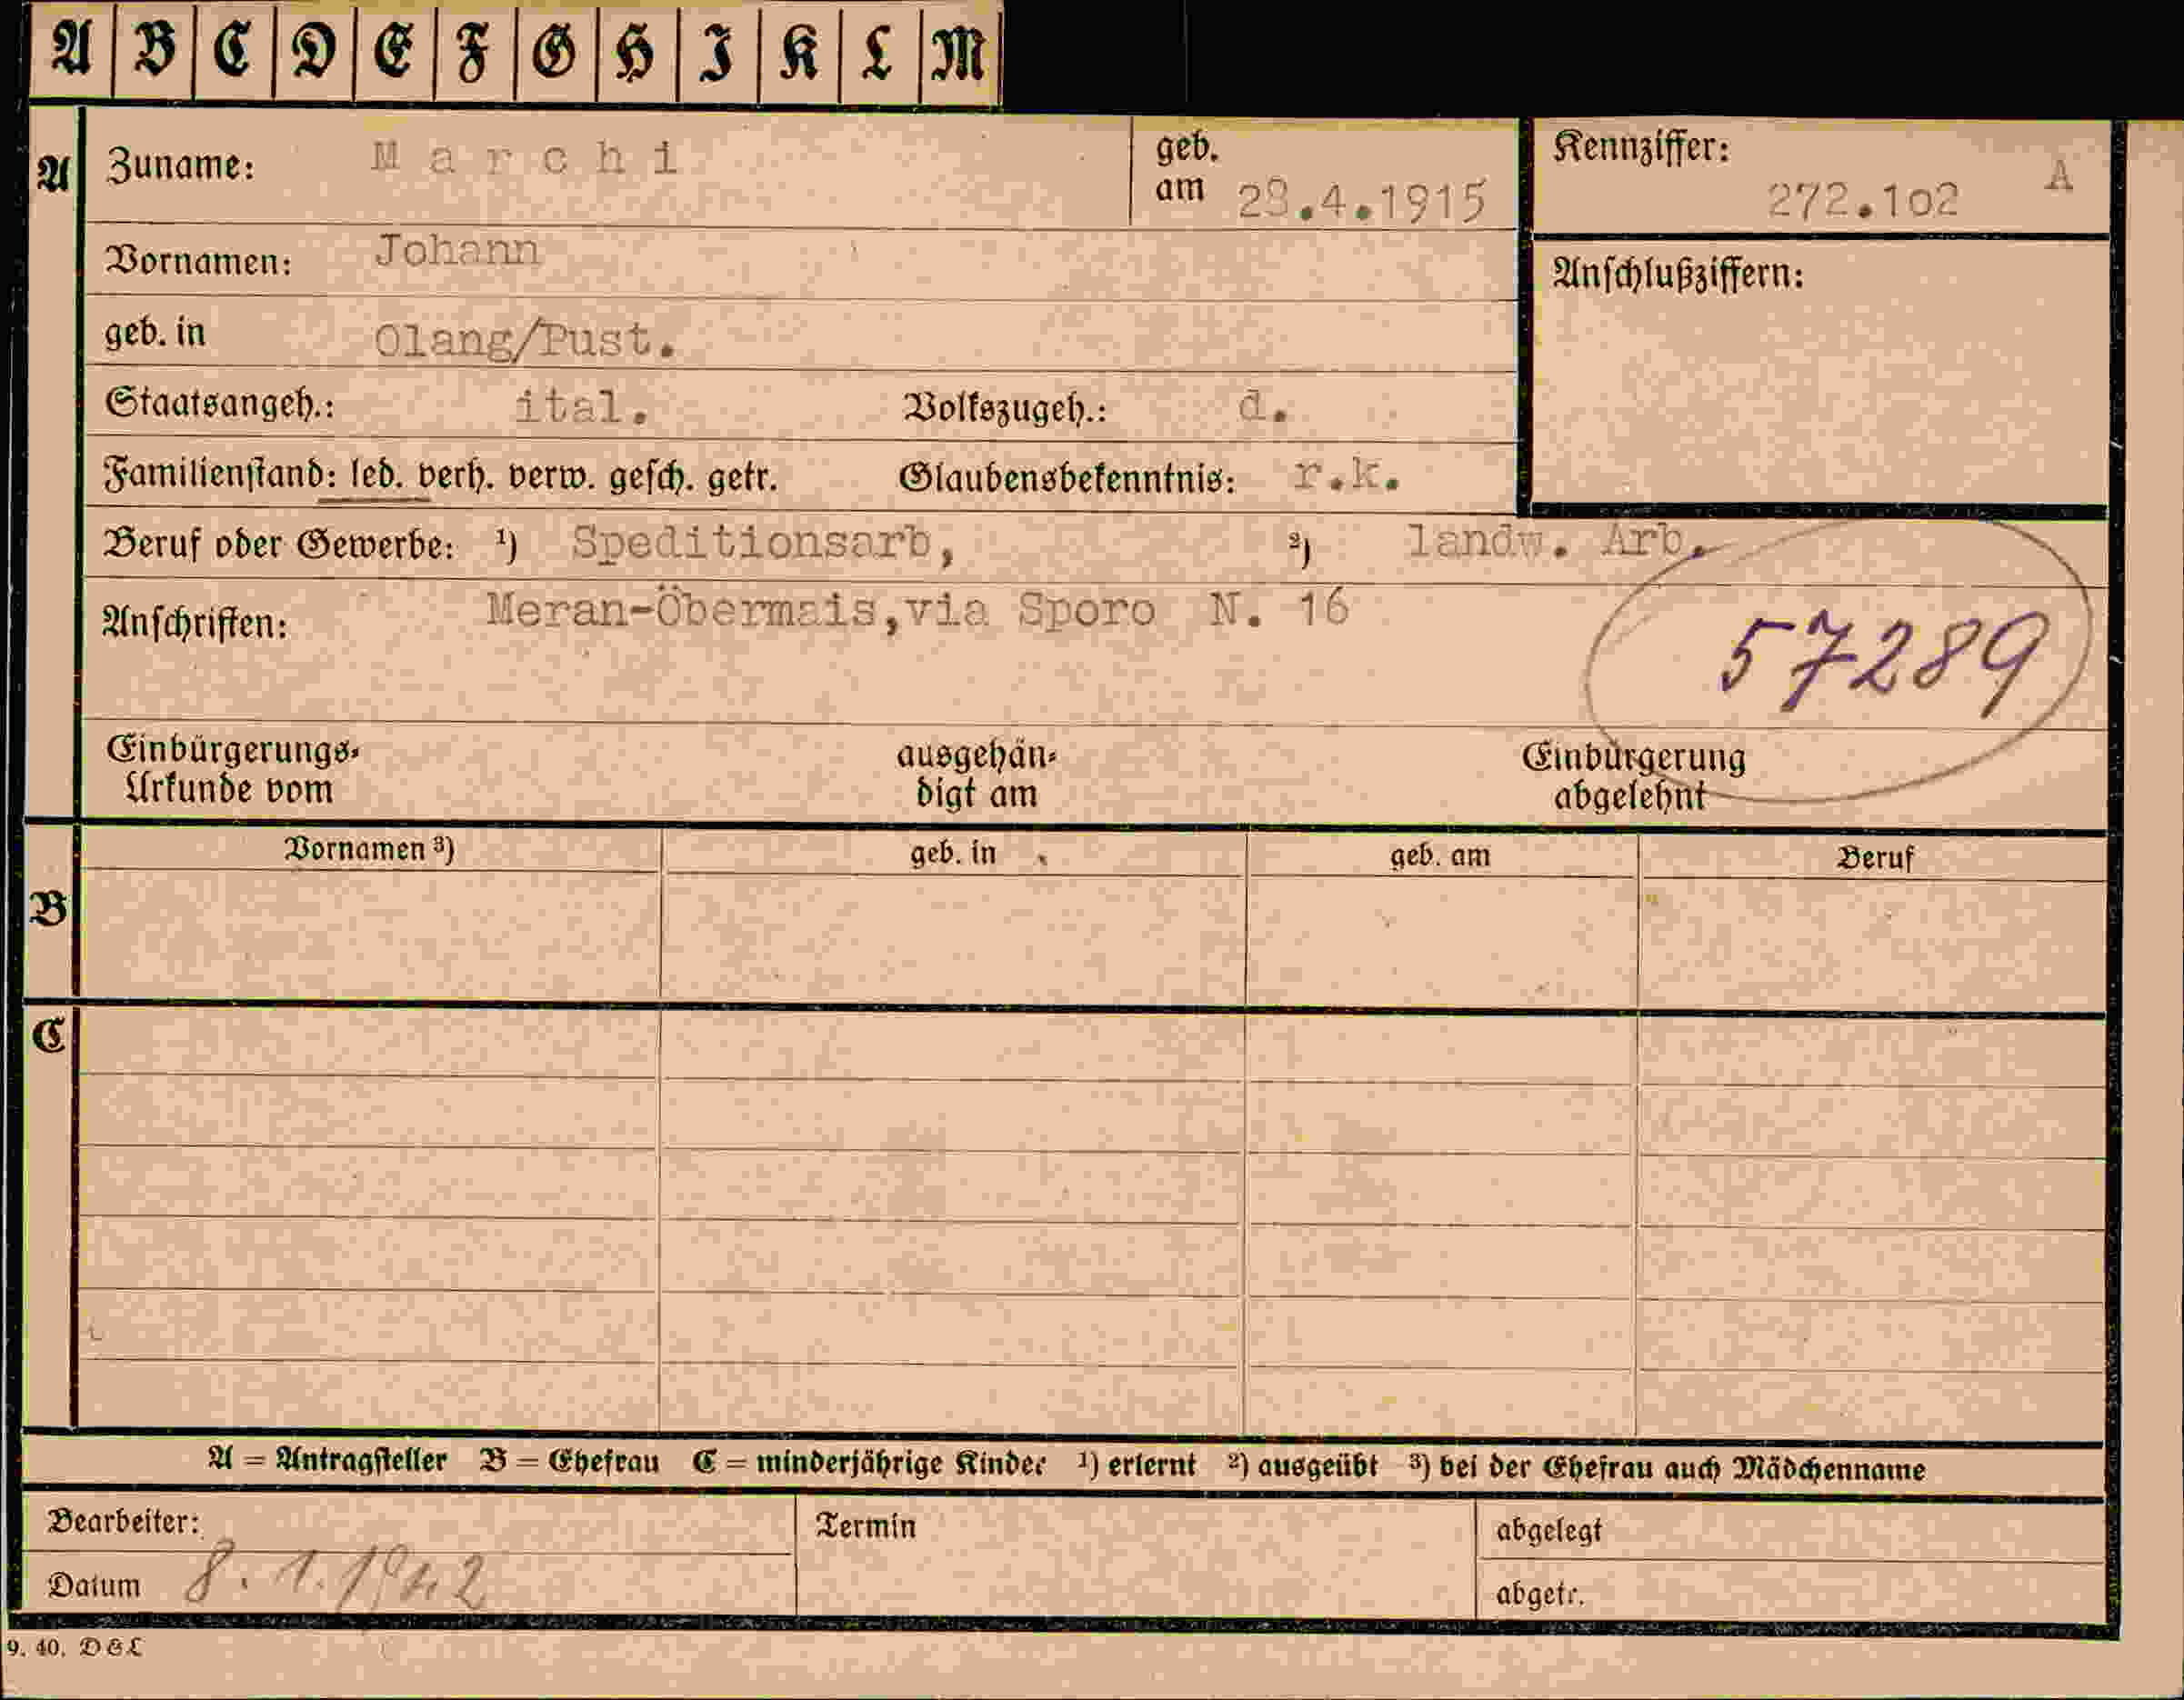 A B C D E F G H I K L M
A Zuname: Marchi geb. am 29.4.1915 Kennziffer: 272.102 A
Vornamen: Johann Anschlußziffern:
geb. in Olang/Pust.
Staatsangeh.: ital. Volkszugeh.: d.
Familienstand: led. verh. verw. gesch. getr. Glaubensbekenntnis: r.k.
Beruf oder Gewerbe: ¹) Speditionsarb, ²) landw. Arb.
Anschriften: Meran-Obermais,via Sporo N. 16 57289
Einbürgerungs- ausgehän- Einbürgerung
Urkunde vom digt am abgelehnt
Vornamen ³) geb. in geb. am Beruf
B
C
A = Antragsteller B = Ehefrau C = minderjährige Kinder ¹) erlernt ²) ausgeübt ³) bei der Ehefrau auch Mädchenname
Bearbeiter: Termin abgelegt
Datum 8.1.1942 abgetr.
9. 40. D&L